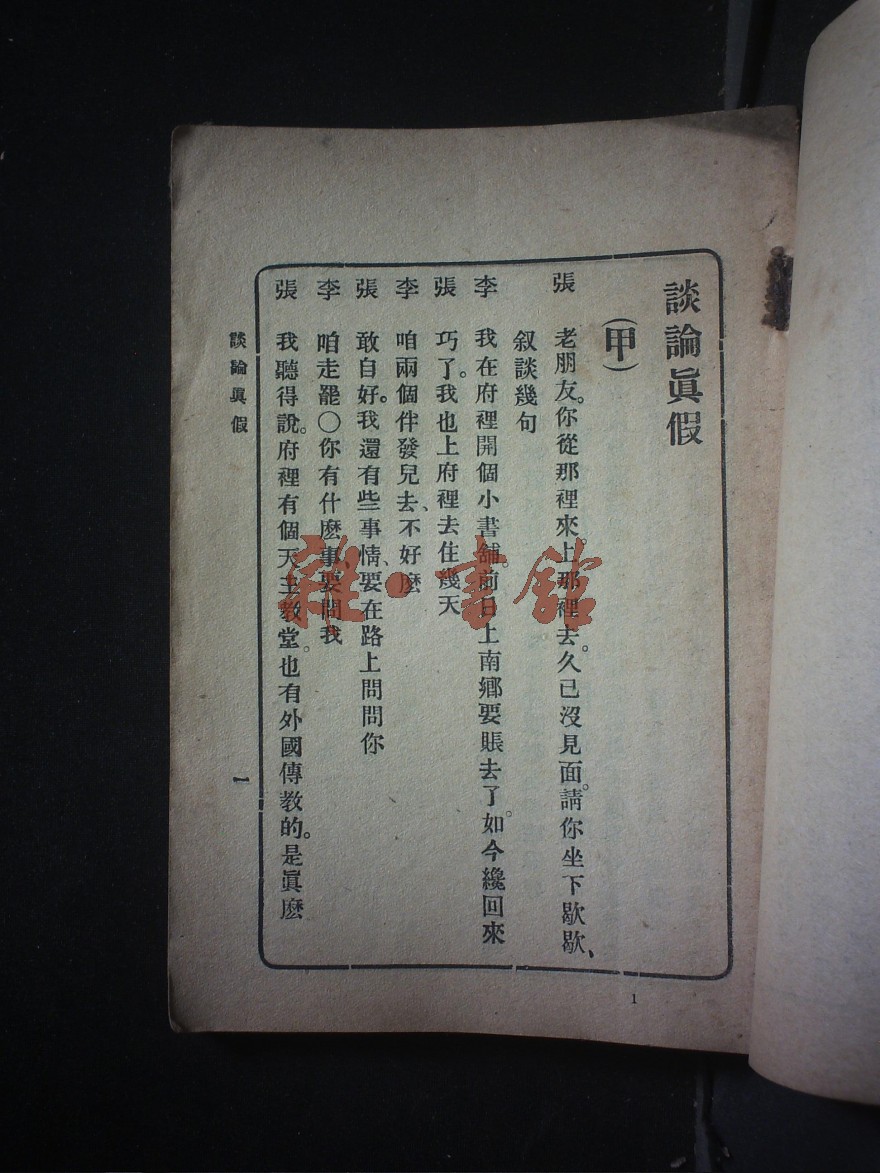 談論眞假
(甲)
張 老朋友。你從那裡來。上那裡去。久已沒見面。請你坐下歇歇、
叙談幾句
李 我在府裡開個小書舖。前日上南鄉要賬去了。如今纔回來
張 巧了。我也上府裡去住幾天
李 咱兩個伴發兒去、不好麽
張 敢自好。我還有些事情、要在路上問問你
李 咱走罷〇你有什麽事、要問我
張 我聽得說。府裡有個天主教堂。也有外國傳教的。是眞麽
談論眞假
一
1
雜·書館